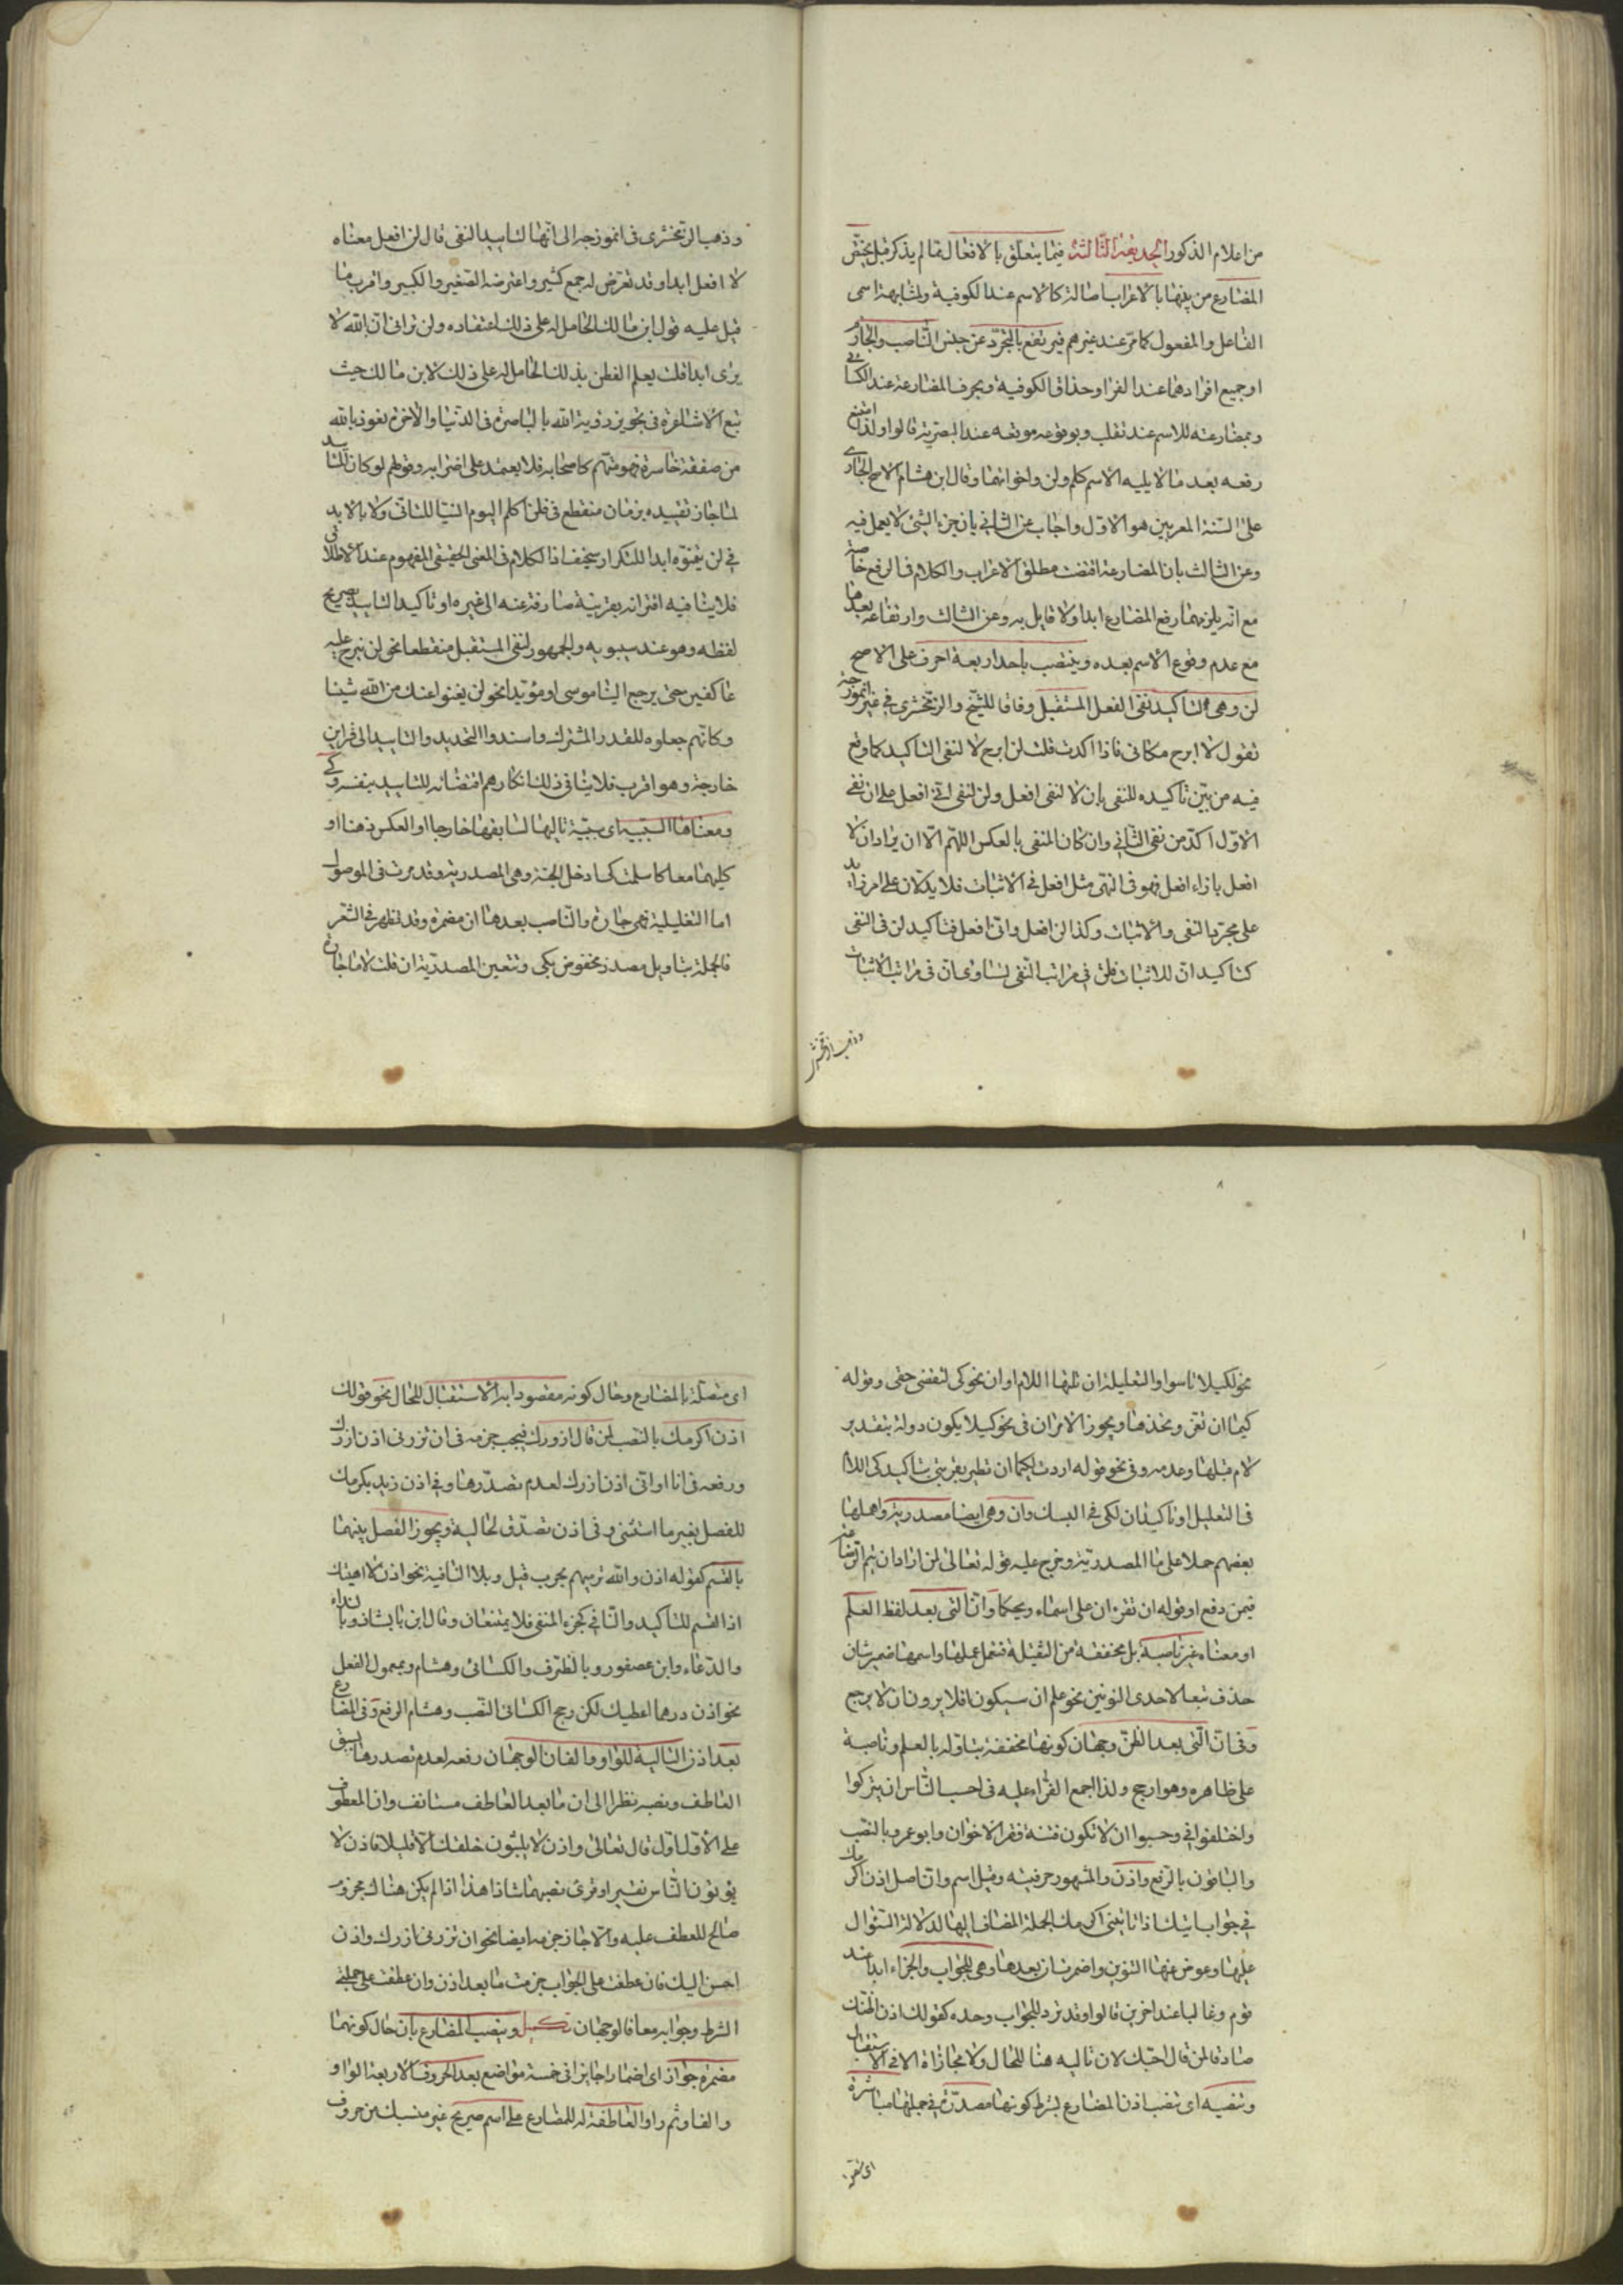 من اعلام الذكور الحديقة الثالثة فيما يتعلق بالافعال مما لم يذكر قبل يختص
المضارع من بينها بالاعراب اصالة كالاسم عند الكوفية ولمشابهة اسمى
الفاعل والمفعول كما مر عند غيرهم فيرتفع بالتجرد عن جنس الناصب والجازم
او جميع افرادهما عند الفرا وحذاق الكوفية وبحرف المضارعة عند الكسائى
وبمضارعته للاسم عند ثعلب وبوقوعه موقعه عند البصرية قالوا ولذا امتنع
رفعه بعد ما لا يليه الاسم كلم ولن واخواتهما وقال ابن هشام الاصح الجارى
على السنة المعربين هو الاول واجاب عن الثانى بان جزء الشئ لا يعمل فيه
وعن الثالث بان المضارعة اقتضت مطلق الاعراب والكلام فى الرفع خاصة
مع انه يلزمهما رفع المضارع ابدا ولا قايل به وعن الثالث وارتفاعه بعد ما
مع عدم وقوع الاسم بعده وينتصب باحد اربعة احرف على الاصح
لن وهى لتاكيد نفى الفعل المستقبل وفاقا للشيخ والزمخشرى فى غير انموزجه
تقول لا ابرح مكانى فاذا اكدت قلت لن ابرح لا لنفى التاكيد كما وقع
فيه من بين تاكيده للنفى بان لا لنفى افعل ولن لنفى انى افعل على ان نفى
الاول اكد من نفى الثانى وان كان المنفى بالعكس اللهم الا ان يراد ان لا
افعل بازاء افعل فهو فى النهى مثل افعل فى الاثبات فلا يدلان على امر زايد
على مجرد النفى والاثبات وكذا لن افعل وانى افعل فتاكيد لن فى النفى
كتاكيد ان للاثبات فلن فى مراتب النفى تساوى ان فى مراتب الاثبات
وذهب الزمخشرى
وذهب الزمخشرى فى انموزجه الى انها لتابيد النفى قال لن افعل معناه
لا افعل ابدا وقد تعرض له جمع كثير واعترضه الصغير والكبير واقرب ما
قيل عليه قول ابن مالك الحامل له على ذلك اعتقاده ولن ترانى ان الله لا
يرى ابدا قلت يعلم الفطن بذلك الحامل له على ذلك لابن مالك حيث
تبع الاشاعرة فى تجويز رؤية الله بالباصرة فى الدنيا والاخرة نعوذ بالله
من صفقة خاسرة فهو متهم كاصحابه فلا يعتمد على اضرابه وقولهم لو كان للتابيد
لما جاز تقييده بزمان منقطع فى فلن اكلم اليوم انسيا للتنافى ولا بالابد
فى لن يتمنوه ابدا للتكرار سخيف اذ الكلام فى المعنى الحقيقى المفهوم عند الاطلاق
فلا ينافيه اقترانه بقرينة صارفة عنه الى غيره او تاكيد التابيد بصريح
لفظه وهو عند سيبويه والجمهور لنفى المستقبل منقطعا نحو لن نبرح عليه
عاكفين حتى يرجع الينا موسى او مؤبدا نحو لن يغنوا عنك من الله شيئا
وكانهم جعلوه للقدر المشترك واسندوا التحديد والتابيد الى قراين
خارجة وهو اقرب فلا ينافى ذلك انكارهم اقتضائه للتابيد بنفسه وكى
ومعناها السببية اى سببية تاليها لسابقها خارجا او العكس ذهنا او
كليهما معا كاسلمت كى ادخل الجنة وهى المصدرية وقد مرت فى الموصول
اما التعليلية فهى جارة والناصب بعدها ان مضمرة وقد تظهر فى الشعر
فالجملة بتاويل مصدر مخفوض بكى وتتعين المصدرية ان قلت لاما جارة
نحو لكيلا تاسوا والتعليلة ان تلها اللام او ان نحو كى لتقضى حقى وقوله
كيما ان تغر وتخدعا ويجوز الامران فى نحو كيلا يكون دولة بتقدير
لام قبلها وعدمه وفى نحو قوله اردت لكيما ان تطير بقربتى بتاكيد كى اللام
فى التعليل او تاكيد ان لكى فى السبك وان وهى ايضا مصدرية واهملها
بعضهم حملا على ما المصدرية وخرج عليه قوله تعالى لمن اراد ان يتم الرضاعة
فيمن رفع او قوله ان تقرءان على اسماء ويحكما وان التى بعد لفظ العلم
او معناه غير ناصبة بل مخففة من الثقيلة فتعمل عملها واسمها ضمير شان
حذف تبعا لاحدى النونين نحو علم ان سيكون افلا يرون ان لا يرجع
وفى ان التى بعد الظن وجهان كونها مخففة بتاوله بالعلم وناصبة
على ظاهره وهو ارجح ولذا اجمع القراء عليه فى احسب الناس ان يتركوا
واختلفوا فى وحسبوا ان لا تكون فتنة فقرا الاخوان وابو عمرو بالنصب
والباقون بالرفع واذن والمشهور حرفيته وقيل اسم وان اصل اذن اكرمك
فى جواب اتيك اذا تاتينى اكرمك الجملة المضاف اليها لدلالة السئوال
عليها وعوض عنها التنوين واضمرت ان بعدها وهى للجواب والجزاء ابدا عند
قوم وغالبا عند اخرين قالوا وقد ترد للجواب وحده كقولك اذن اظنك
صادقا لمن قال احبك لان تاليه هنا للحال ولا مجازاة الا فى الاستقبال
وتنصبه اى تنصب اذن المضارع بشرط كونها مصدرة فى جملتها مباشرة
اى متصلة
اى متصلة بالمضارع وحال كونه مقصودا به الاستقبال للحال نحو قولك
اذن اكرمك بالنصب لمن قال ازورك فيجب جزمه فى ان تزرنى اذن ازرك
ورفعه فى انا او انى اذن ازرك لعدم تصدرها وفى اذن زيد يكرمك
للفصل بغير ما استثنى وفى اذن تصدق لحالية ويجوز الفصل بينهما
بالقسم كقوله اذن والله نرميهم بحرب قيل وبلا النافية نحو اذن لا اهينك
اذ القسم للتاكيد والنافى كجزء المنفى فلا يمنعان وقال ابن بابشاذ وبالنداء
والدعاء وابن عصفور وبالظرف والكسائى وهشام وبمعمول الفعل
نحو اذن درهما اعطيك لكن رجح الكسائى النصب وهشام الرفع وفى المضارع
بعد اذن التالية للواو والفاء الوجهان رفعه لعدم تصدرها لسبق
العاطف ونصبه نظرا الى ان ما بعد العاطف مستانف وان المعطوف
على الاول اول قال تعالى واذن لا يلبثون خلفك الا قليلا فاذن لا
يؤتون الناس نقيرا وقرئ نصبهما شاذا هذا اذا لم يكن هناك مجزوم
صالح للعطف عليه والا جاز جزمه ايضا نحو ان تزرنى ازرك واذن
احسن اليك فان عطفت على الجواب جزمت ما بعد اذن وان عطفت على جملتى
الشرط وجوابه معا فالوجهان تكميل وينصب المضارع بان حال كونها
مضمرة جوازا اى اضمارا جايزا فى خمسة مواضع بعد الحروف الاربعة الواو
والفا وثم واو العاطفة له للمضارع على اسم صريح غير منسبك من حروف